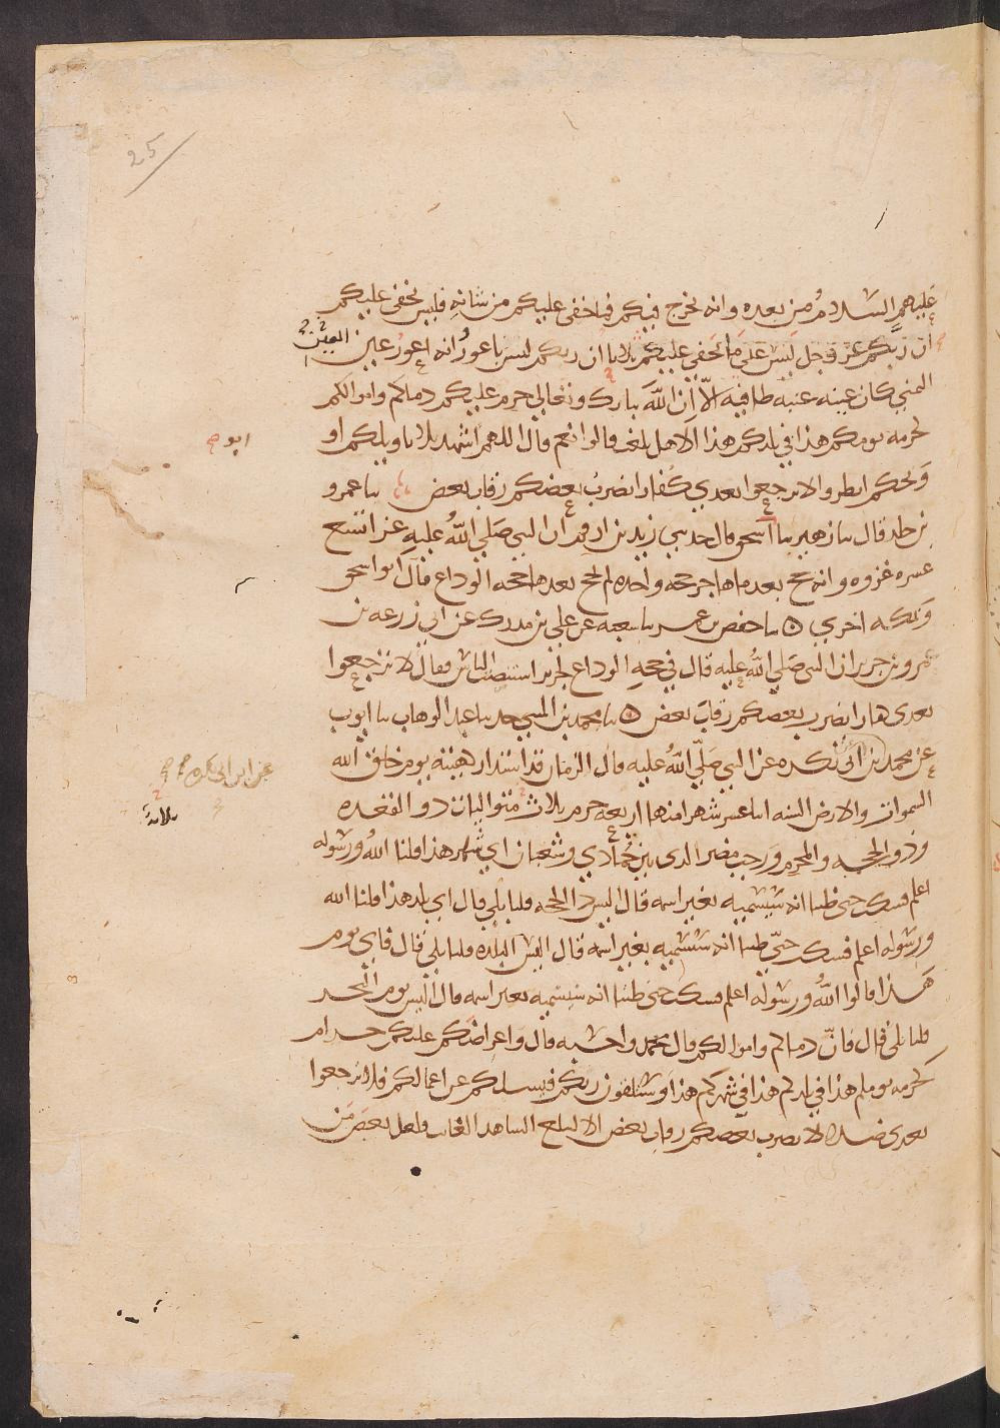 25
عليهم السلام من بعده وانه يخرج فيكم فما خفى عليكم من شانه فليس يخفى عليكم
ان ربكم عز وجل ليس على ما يخفي عليكم ثلاثا ان ربكم ليس باعور انه اعور عين
العين
اليمنى كان عينه عنبه طافيه الا ان الله تبارك وتعالى حرم عليكم دماكم واموالكم
لحرمه يومكم هذا في بلدكم هذا الا هل بلغت قالوا نعم قال اللهم اشهد ثلاثا ويلكم او
ويحكم انظروا لا ترجعوا بعدي كفارا يضرب بعضكم رقاب بعض نا عمرو
بن خلد قال نا زهير نا اسحق قال حدثني زيد بن ارقم ان النبي صلى الله عليه غزا تسع
عشره غزوه وانه حج بعد ما هاجر حجه واحده لم يحج بعدها حجه الوداع قال ابو اسحق
وبمكه اخري ه نا حفص بن عمر نا شعبه عن علي بن مدرك عن ابي زرعه بن
عمرو بن جرير ان النبي صلى الله عليه قال في حجه الوداع لجرير استنصت الناس فقال لا ترجعوا
بعدى كفارا يضرب بعضكم رقاب بعض ه نا محمد بن المثنى نا عبد الوهاب نا ايوب
عن محمد بن ابى بكره عن النبي صلى الله عليه قال الزمان قد استدار كهيئته يوم خلق الله
عن ابن ابى بكره
السموات والارض السنه اثنا عشر شهرا منها اربعه حرم ثلاث متواليات ذو القعده
ثلاثة
وذو الحجه والمحرم ورجب مضر الذى بين جمادي وشعبان اي شهر هذا قلنا الله ورسوله
اعلم فسكت حتى ظننا انه سيسميه بغير اسمه قال اليس ذا الحجه قلنا بلي قال اي بلد هذا قلنا الله
ورسوله اعلم فسكت حتى ظننا انه سيسميه بغير اسمه قال اليس البلده قلنا بلي قال فاي يوم
هذا قالوا الله ورسوله اعلم فسكت حتى ظننا انه سيسميه بغير اسمه قال اليس يوم النحر
قلنا بلى قال فان دماكم واموالكم قال محمد واحسبه قال واعراضكم عليكم حرام
كحرمه يومكم هذا في بلدكم هذا في شهركم هذا وستلقون ربكم فيسلكم عن اعمالكم فلا ترجعوا
بعدى ضلالا يضرب بعضكم رقاب بعض الا ليبلغ الشاهد الغايب ولعل بعض من